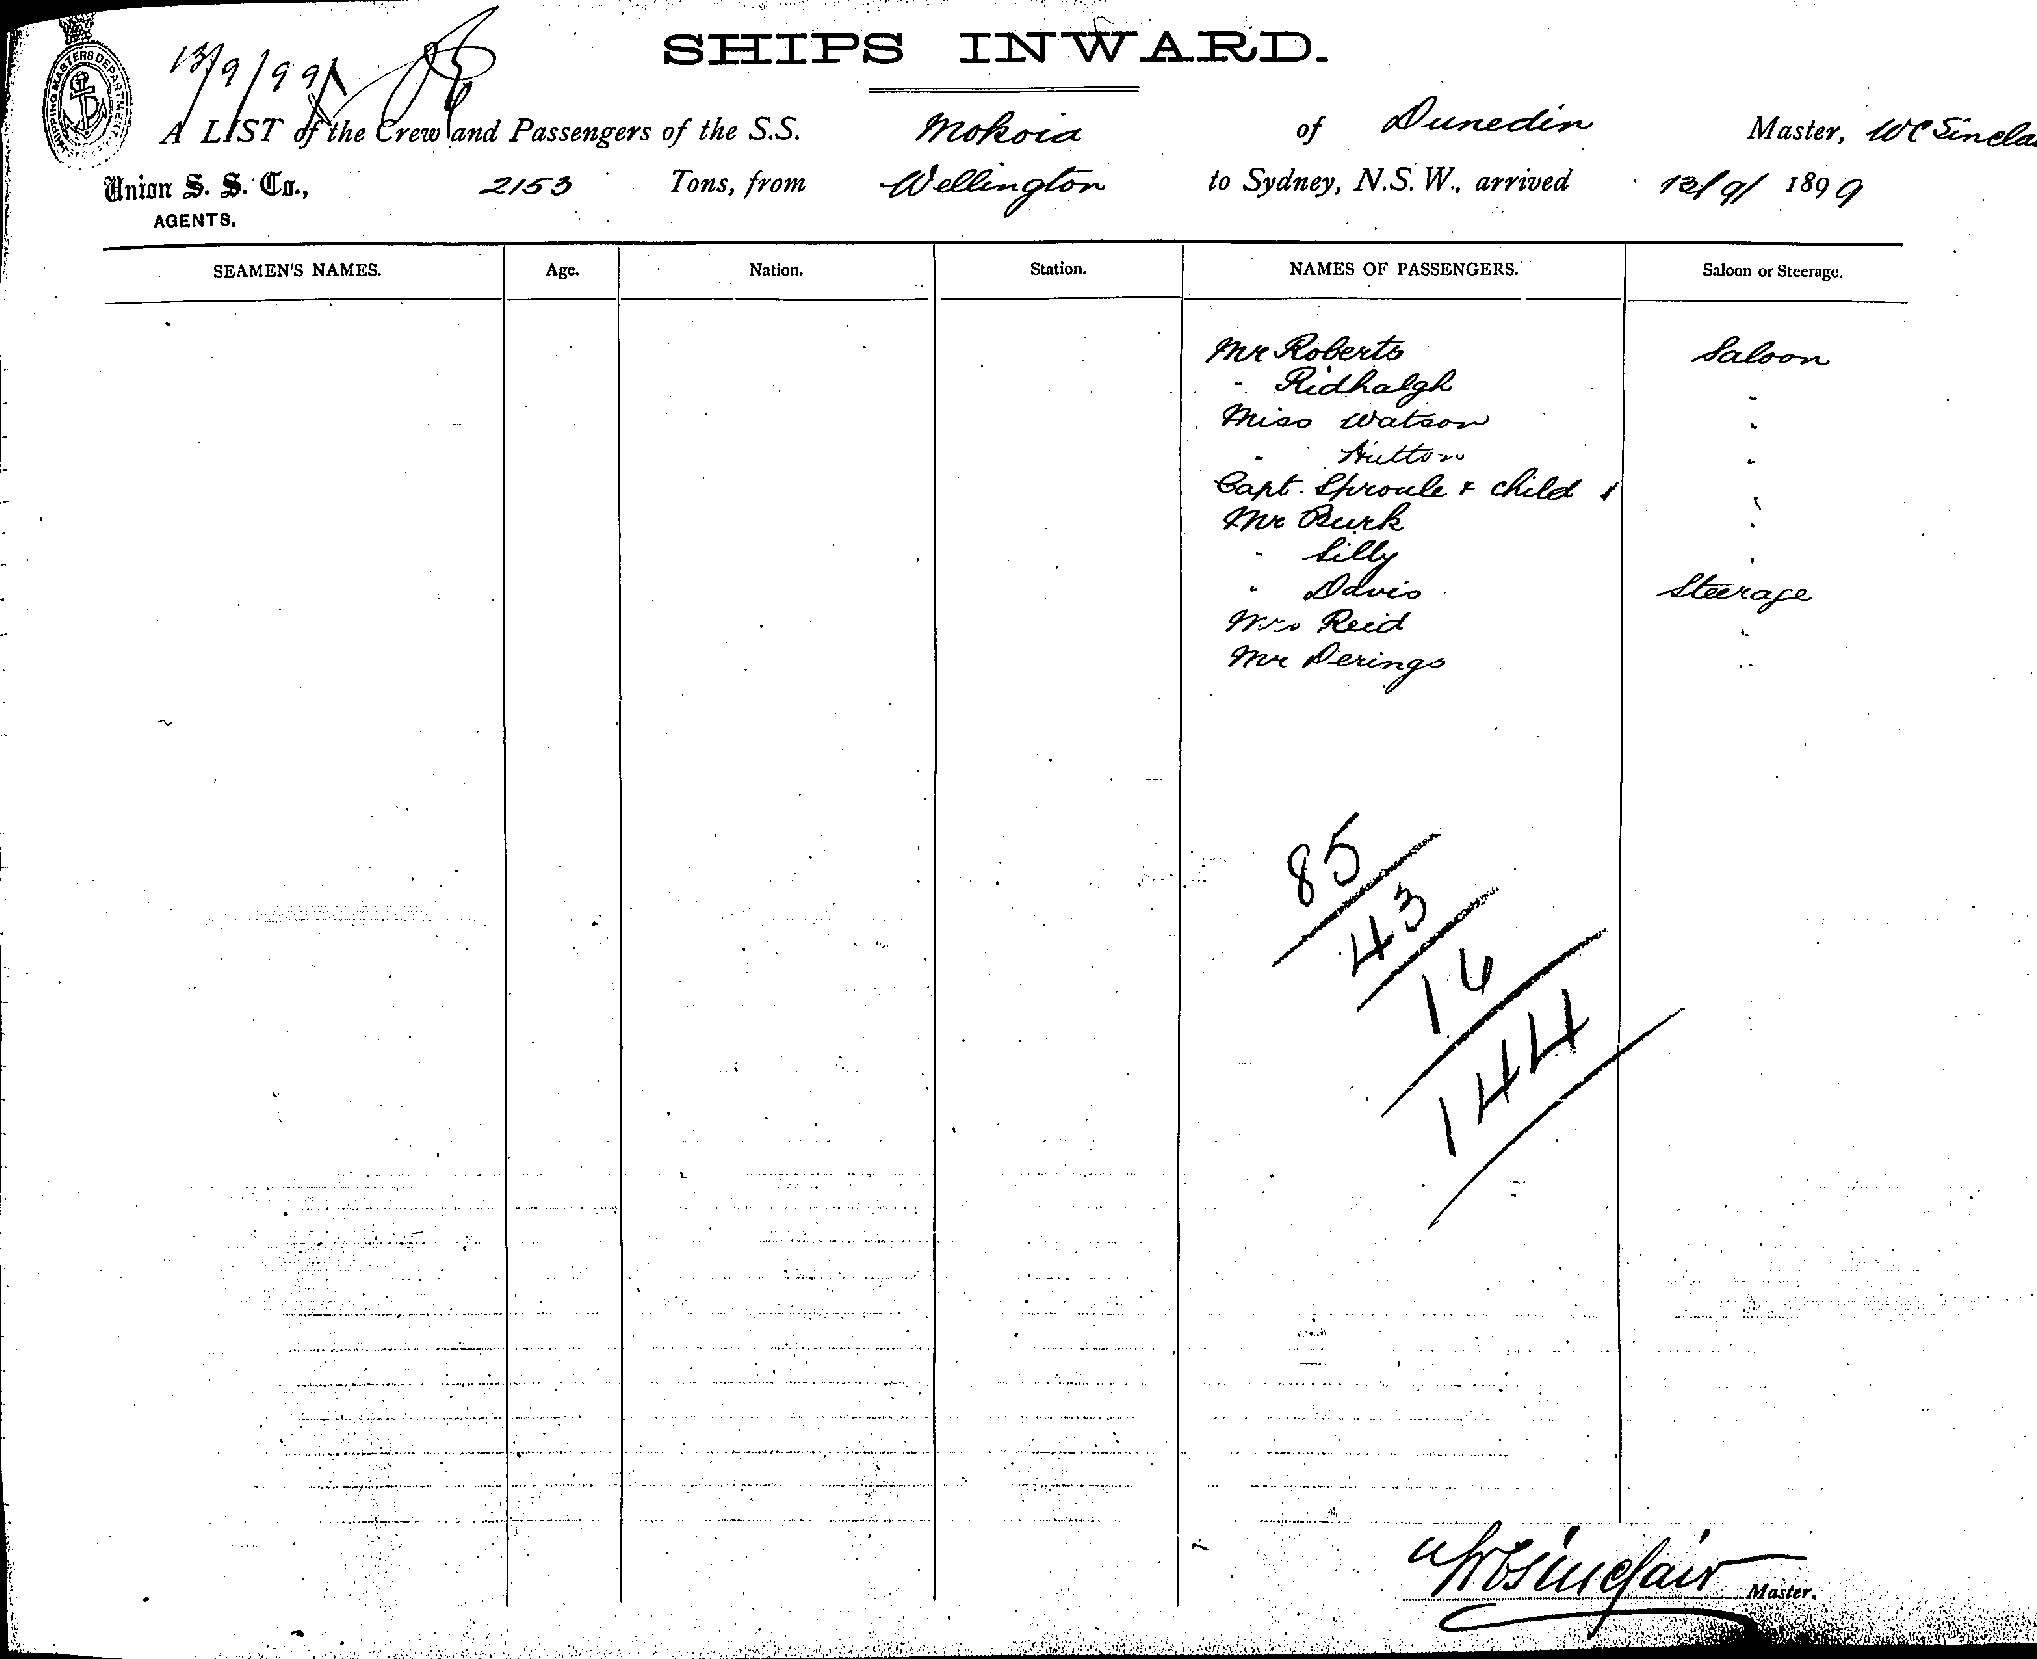 SHIPS INWARD.
13/9/99
SHIPPING MASTERS DEPARTMENT
A LIST of the Crew and Passengers of the S.S. Mokoia of Dunedin Master, WC Sincla
Union S. S. Co., 2153 Tons, from Wellington to Sydney, N.S.W., arrived 13/9/ 1899
AGENTS,
SEAMEN'S NAMES. Age. Nation. Station. NAMES OF PASSENGERS. Saloon or Steerage.
Mr Roberts Saloon
" Ridhalgh "
Miss Watson "
" Hutton "
Capt. Sproule & child 1 "
Mr Burk "
" Lilly "
" Davis Steerage
Mrs Reid "
Mr Derings "
85
43
16
144
WCSinclair Master.